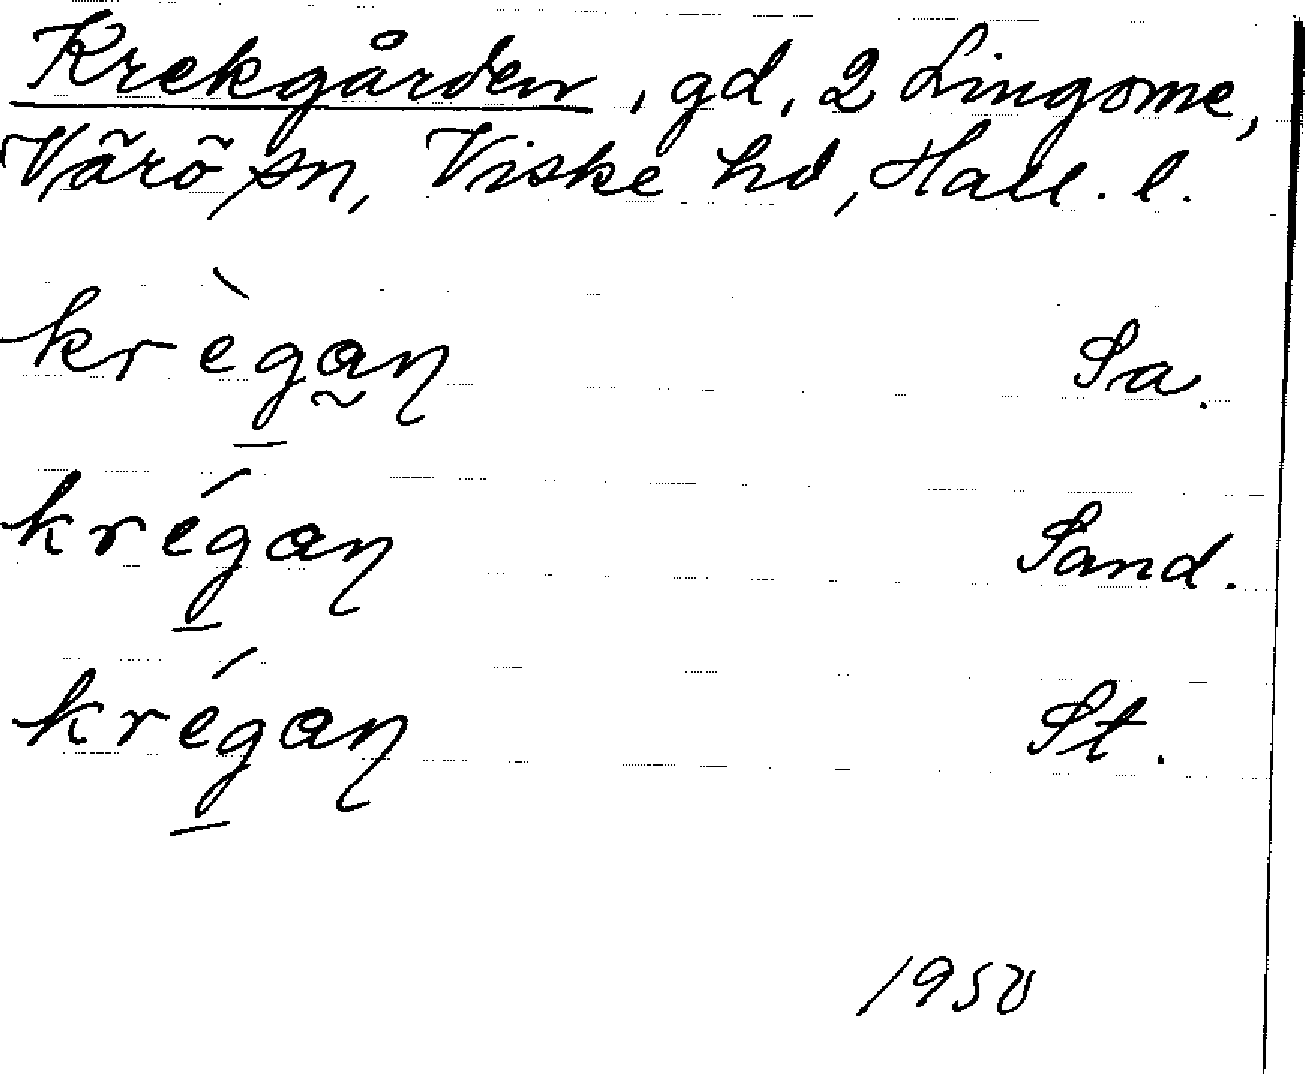 Krekgården, gd, 2 Lingome,
Värö sn, Viske hd, Hall. l.
krègan Sa.
krégan Sand.
krégan St.
1950